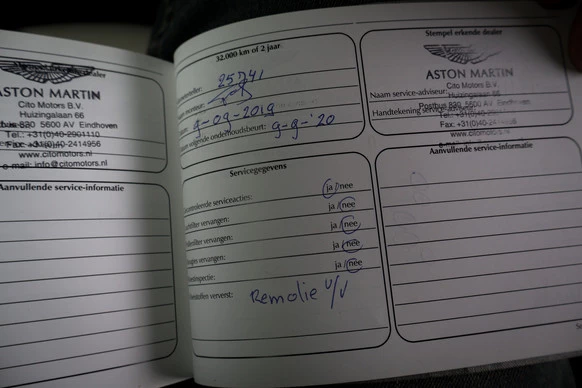 dealer
ASTON MARTIN
Cito Motors B.V.
Huizingalaan 66
5600 AV Eindhoven
Tel.: +31(0)40-2901110
Fax: +31(0)40-2414956
www.citomotors.nl
e-mail: info@citomotors.nl
Aanvullende service-informatie
32.000 km of 2 jaar
25741
9-09-2019
volgende onderhoudsbeurt: 9-9-'20
Servicegegevens
serviceacties: ja/nee
vervangen: ja/nee
vervangen: ja/nee
vervangen: ja/nee
ja/nee
ververst: Remolie v/v
Stempel erkende dealer
ASTON MARTIN
Naam service-adviseur:
Cito Motors B.V.
Huizingalaan 66
Handtekening
Postbus 830 5600 AV Eindhoven
Tel.: +31(0)40-
Fax: +31(0)40-
www.citomotors.nl
Aanvullende service-informatie